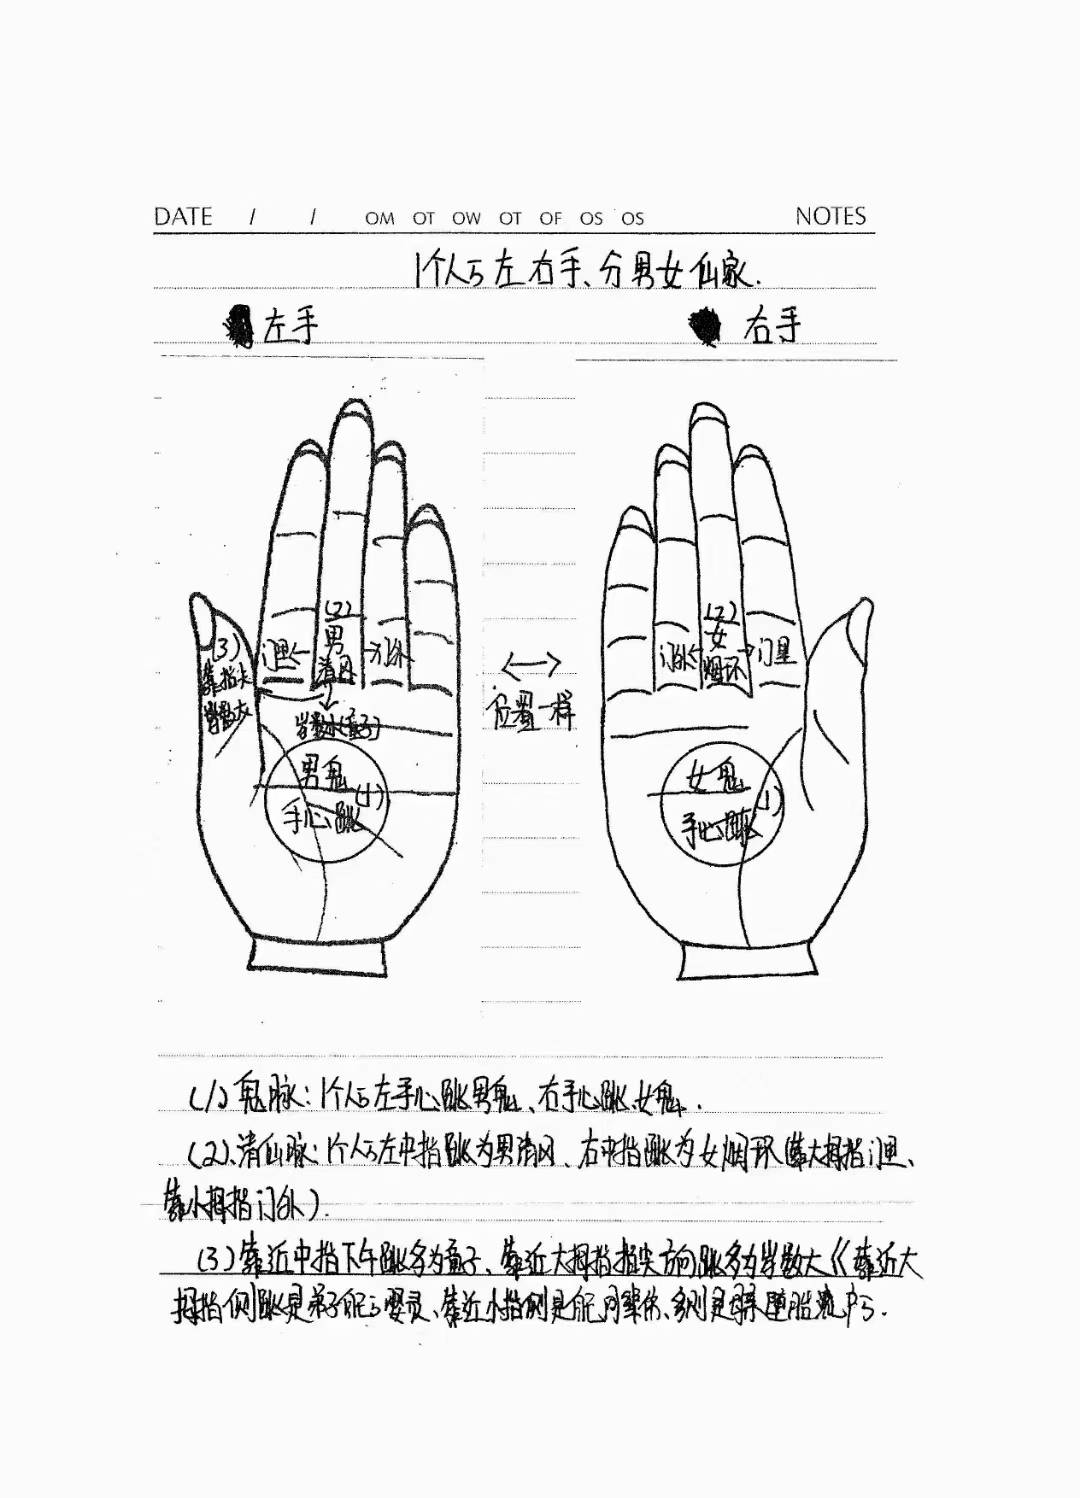 DATE / / OM OT OW OT OF OS OS NOTES
1个人的左右手、分男女仙家.
左手 右手
(3) 靠指尖 岁数大
门里 ←
(2) 男清风
→ 门外
岁数小(童子)
男鬼 (1)
手心跳
←→
位置一样
门外 ←
(2) 女烟环
→ 门里
女鬼 (1)
手心跳
(1)鬼脉:1个人的左手心跳男鬼、右手心跳女鬼.
(2).清仙脉:1个人的左中指跳为男清风、右中指跳为女烟环(靠大拇指门里、
靠小拇指门外).
(3)靠近中指下午跳多为童子、靠近大拇指指尖方向跳多为岁数大《靠近大
拇指侧跳是弟子的婴灵、靠近小指侧是